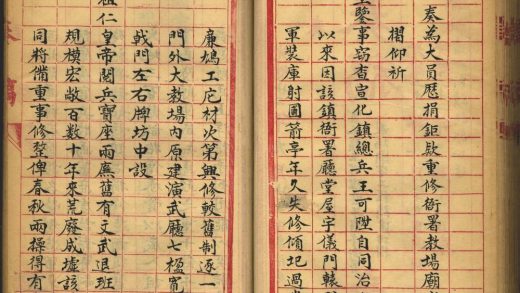 奏為大員歷捐鉅款重修衙署教場廟
摺仰祈
鑒事竊查宣化鎮總兵王可陞自同治
以來因該鎮衙署廳堂屋宇儀門轅
軍裝庫射圃箭亭年久失修傾圯過
廉鳩工庀材次第興修較舊制逐一
門外大教場內原建演武廳七楹
戟門左右牌坊中設
祖仁皇帝閱兵寶座兩廡舊有文武退班
規模宏敞百數十年來荒廢成墟該
同將備重事修整俾春秋兩操得有